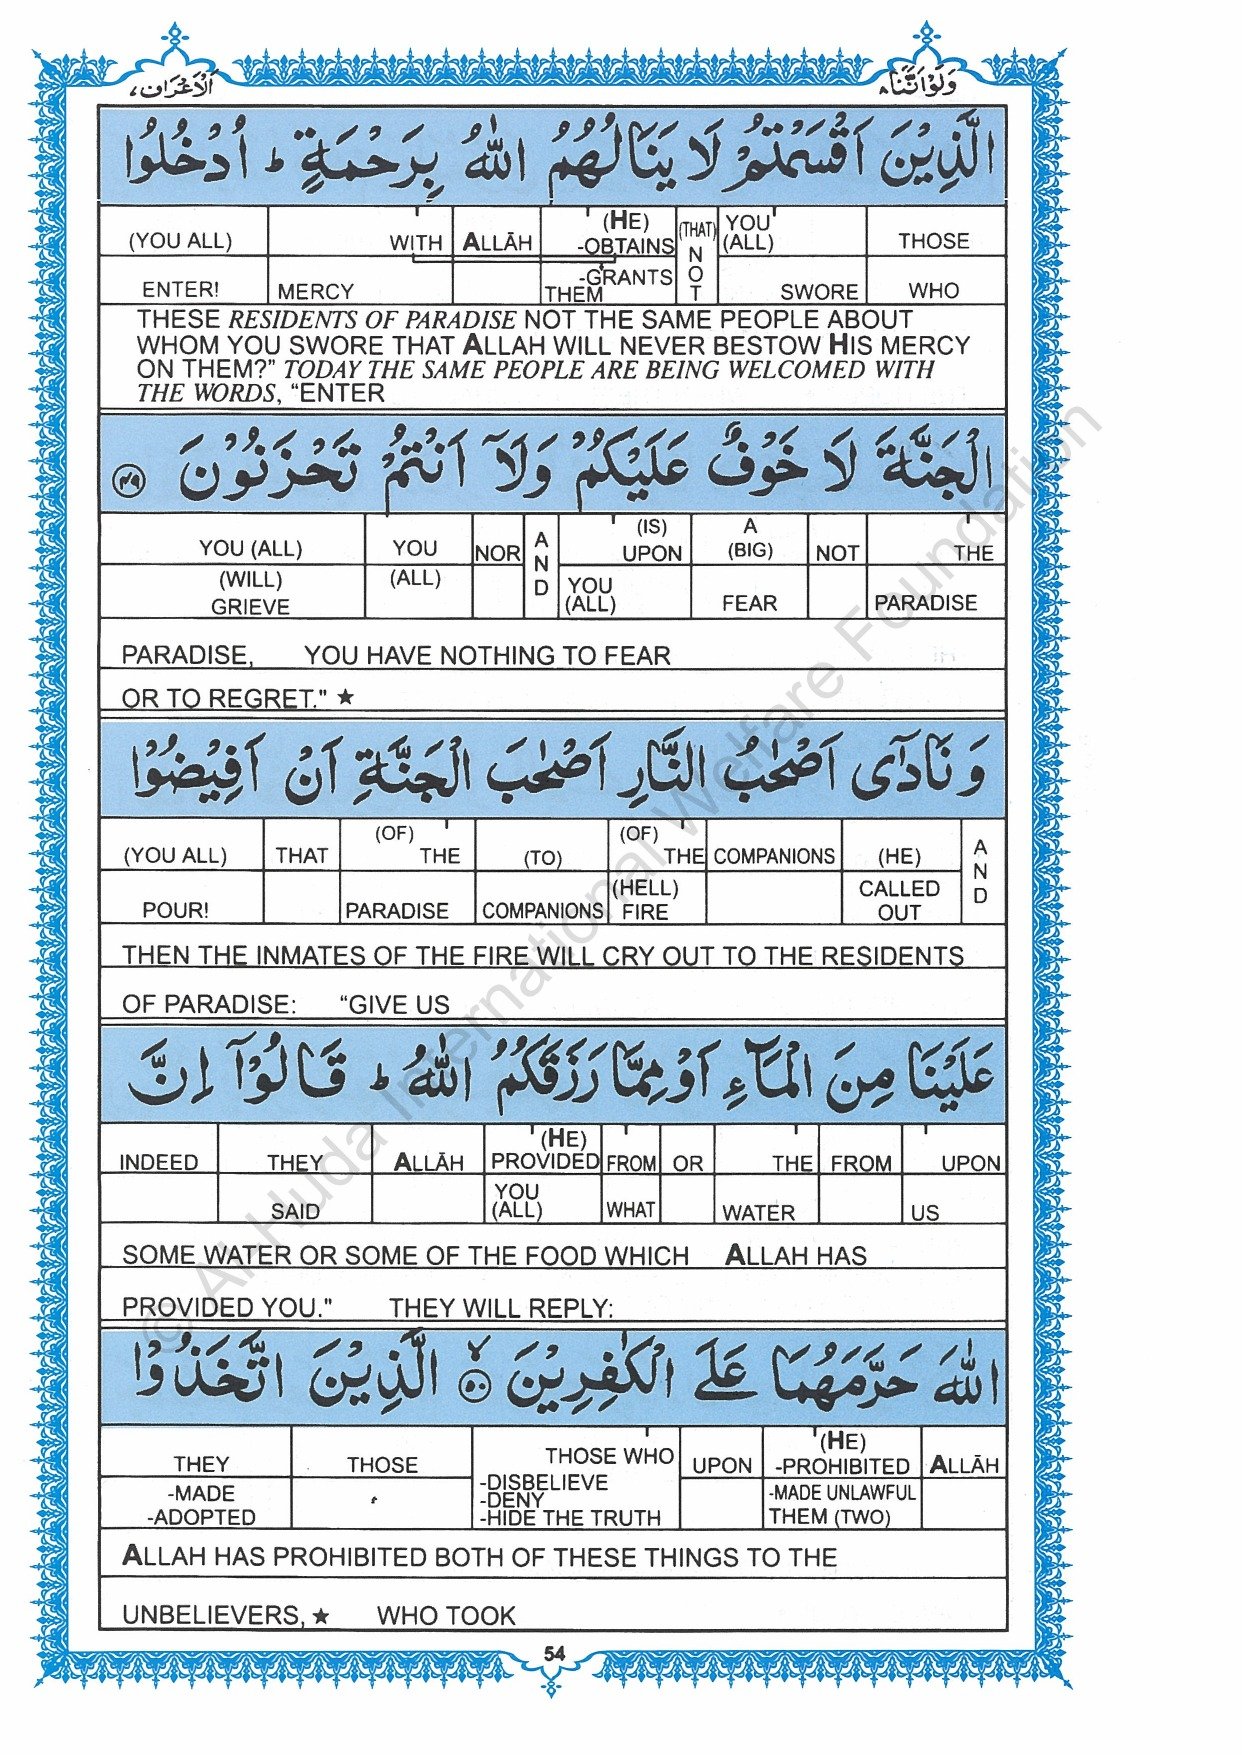 وَلَوْ اَنَّنَا ٨
اَلْاَعْرَاف ٧
الَّذِيْنَ اَقْسَمْتُمْ لَا يَنَالُهُمُ اللّٰهُ بِرَحْمَةٍ ؕ اُدْخُلُوا
(YOU ALL) WITH ALLĀH (HE) -OBTAINS (THAT) NOT YOU (ALL) THOSE
ENTER! MERCY -GRANTS THEM SWORE WHO
THESE RESIDENTS OF PARADISE NOT THE SAME PEOPLE ABOUT
WHOM YOU SWORE THAT ALLAH WILL NEVER BESTOW HIS MERCY
ON THEM?" TODAY THE SAME PEOPLE ARE BEING WELCOMED WITH
THE WORDS, “ENTER
الْجَنَّةَ لَا خَوْفٌ عَلَيْكُمْ وَلَآ اَنْتُمْ تَحْزَنُوْنَ ٤٩
YOU (ALL) YOU NOR AND (IS) UPON A (BIG) NOT THE
(WILL) GRIEVE (ALL) YOU (ALL) FEAR PARADISE
PARADISE, YOU HAVE NOTHING TO FEAR
OR TO REGRET." ★
وَ نَادٰٓى اَصْحٰبُ النَّارِ اَصْحٰبَ الْجَنَّةِ اَنْ اَفِيْضُوْا
(YOU ALL) THAT (OF) THE (TO) (OF) THE COMPANIONS (HE) AND
POUR! PARADISE COMPANIONS (HELL) FIRE CALLED OUT
THEN THE INMATES OF THE FIRE WILL CRY OUT TO THE RESIDENTS
OF PARADISE: “GIVE US
عَلَيْنَا مِنَ الْمَآءِ اَوْ مِمَّا رَزَقَكُمُ اللّٰهُ ؕ قَالُوْٓا اِنَّ
INDEED THEY ALLĀH (HE) PROVIDED FROM OR THE FROM UPON
SAID YOU (ALL) WHAT WATER US
SOME WATER OR SOME OF THE FOOD WHICH ALLAH HAS
PROVIDED YOU." THEY WILL REPLY:
اللّٰهَ حَرَّمَهُمَا عَلَى الْكٰفِرِيْنَ ۙ ٥٠ الَّذِيْنَ اتَّخَذُوْا
THEY THOSE THOSE WHO UPON (HE) -PROHIBITED ALLĀH
-MADE -ADOPTED -DISBELIEVE -DENY -HIDE THE TRUTH -MADE UNLAWFUL THEM (TWO)
ALLAH HAS PROHIBITED BOTH OF THESE THINGS TO THE
UNBELIEVERS, ★ WHO TOOK
54
© Al-Huda International Welfare Foundation